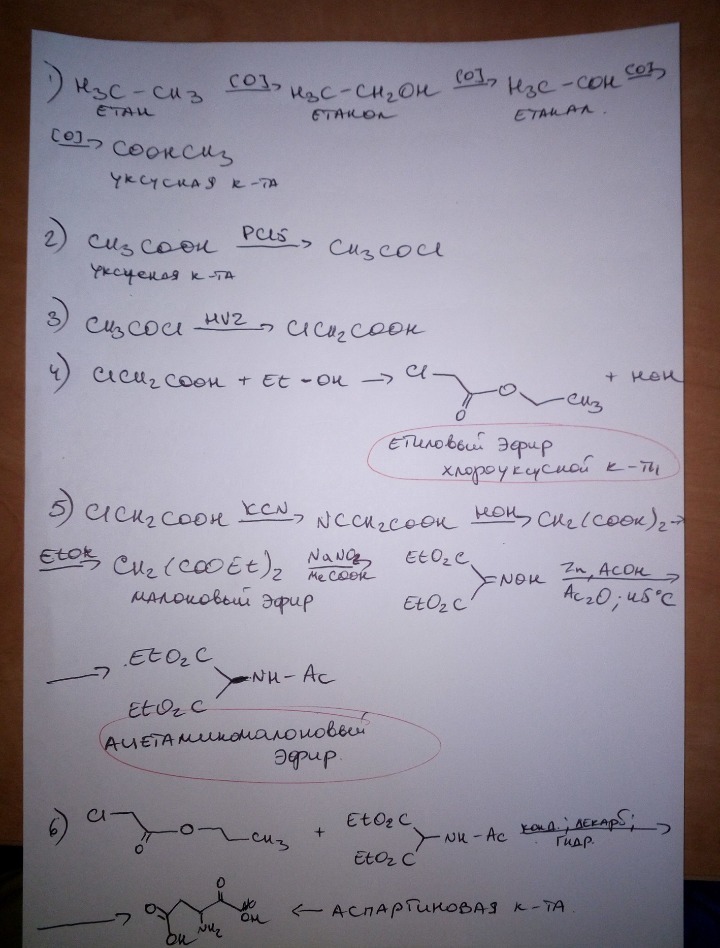 1) H₃C – CH₃ [O]→ H₃C – CH₂OH [O]→ H₃C – COH [O]→
ЕТАН ЕТАНОЛ ЕТАНАЛ.
[O]→ COOHCH₃
УКСУСНАЯ К-ТА
2) CH₃COOH PCl5→ CH₃COCl
УКСУСНАЯ К-ТА
3) CH₃COCl HVZ→ ClCH₂COOH
4) ClCH₂COOH + Et – OH → Cl O O CH₃ + HOH
ЕТИЛОВЫЙ ЭФИР
ХЛОРОУКСУСНОЙ К-ТЫ
5) ClCH₂COOH KCN→ NCCH₂COOH HOH→ CH₂(COOH)₂→
EtOH→ CH₂(COOEt)₂ NaNO₂ MeCOOH EtO₂C EtO₂C =NOH Zn, AcOH Ac₂O; 45°C
МАЛОНОВЫЙ ЭФИР
→ EtO₂C EtO₂C NH – Ac
АЦЕТАМИНОМАЛОНОВЫЙ
ЭФИР.
6) Cl O O CH₃ + EtO₂C EtO₂C NH – Ac КОНД.; ДЕКАРБ; ГИДР.
→ O OH NH₂ O OH ← АСПАРТИНОВАЯ К-ТА.